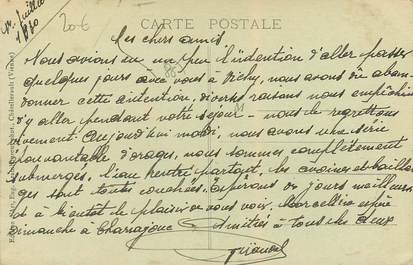 CARTE POSTALE
20 €
Juillet
1930
Mes chers amis
Nous avions eu un peu l'intention d'aller passer
quelques jours avec vous à Vichy, nous avons dû aban-
donner cette intention, diverses raisons nous empêchèrent
d'y aller pendant votre séjour - nous le regrettons
vivement. Aujourd'hui mardi, nous avons une série
épouvantable d'orages, nous sommes complètement
submergés. l'eau rentre partout, les avoines et baillar
ges sont toutes couchées. Espérons de jours meilleurs
et à bientôt le plaisir de vous voir, Marcelle espère
dimanche à Amitiés à tous les deux